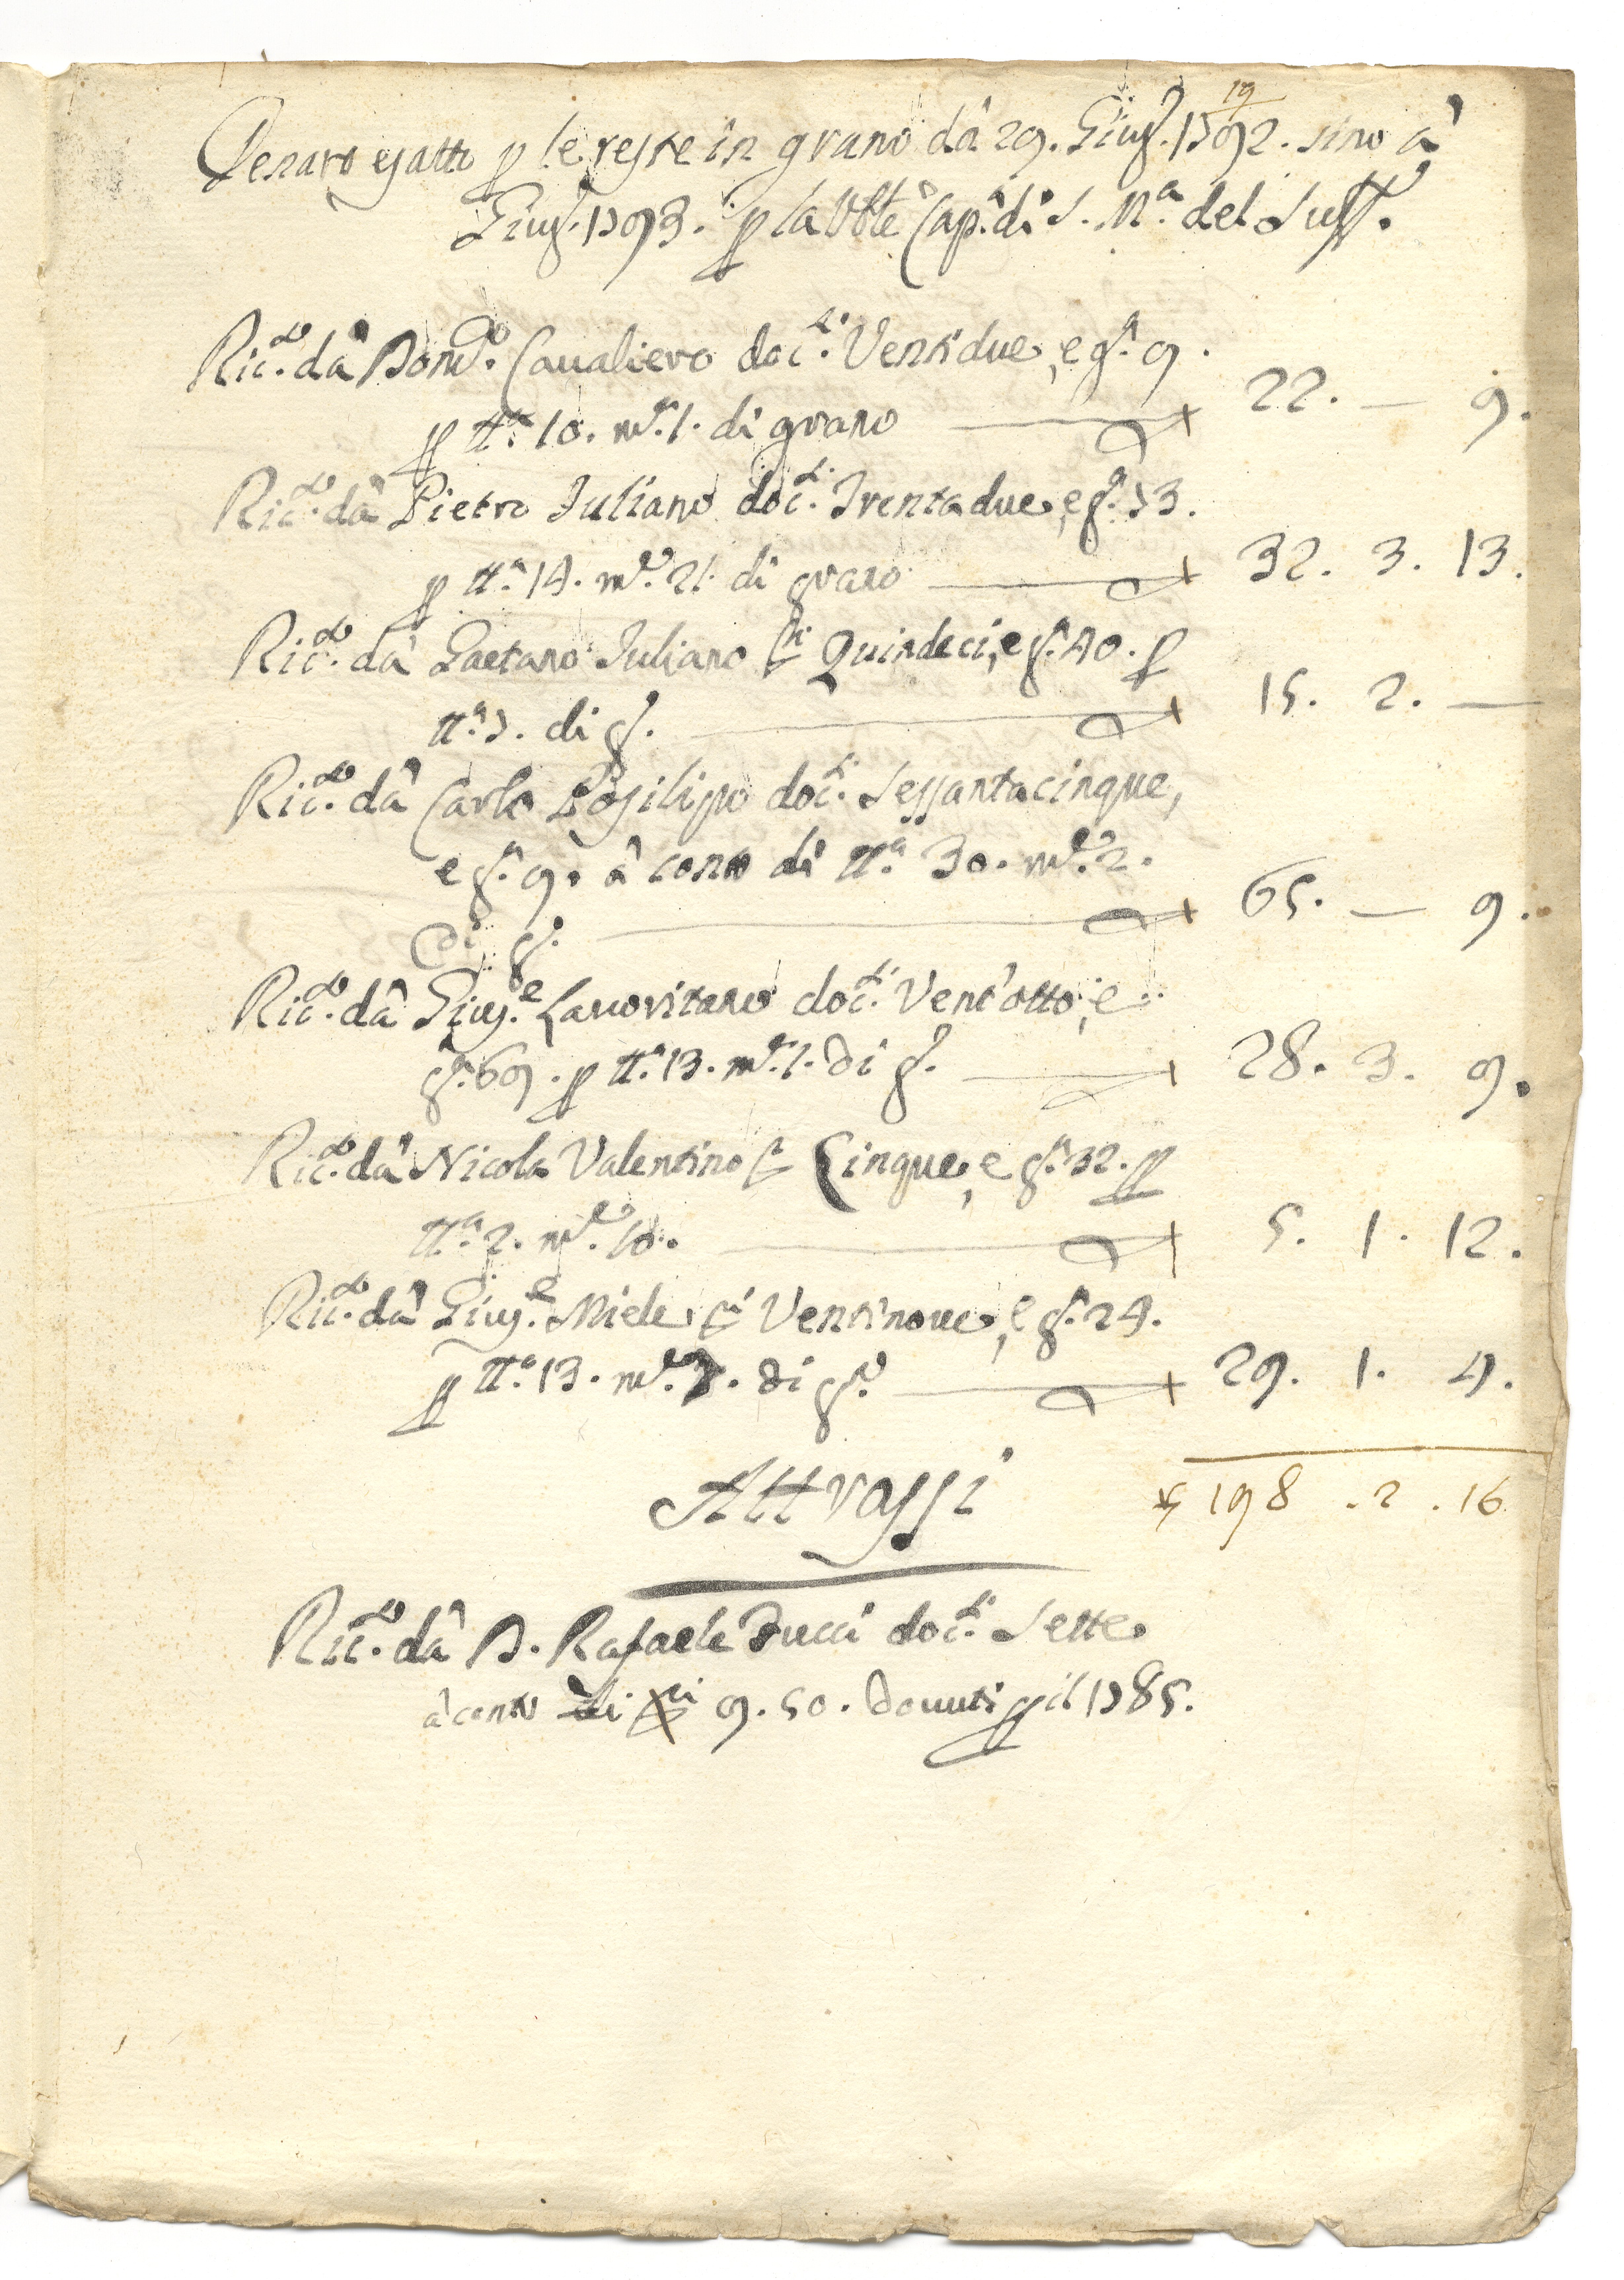 19
Denaro esatto p le resre in grano dâ 29. Giug.º 1792. sino â
Giug.º 1793. p la Vble Cap.ª di S. M.ª del Suff.º
Ric.to dâ Dom.co Caualiero doc.ti Ventidue, e g.ª 9.
p tt.ª 10. m.re 1. di grano 22. — 9.
Ric.to dâ Pietro Iuliano doc.ti Trentadue, e g.ª 73.
p tt.ª 14. m.re 21. di grano 32. 3. 13.
Ric.to dâ Gaetano Iuliano Quindeci, e g.ª 40. p
tt.ª 7. di g.º 15. 2. —
Ric.to dâ Carlo Posilipo doc.ti Sessantacinque,
e g.ª 9. â conto di tt.ª 30. m.re 2.
di g.º 65. — 9.
Ric.to dâ Gius.e Lauoritano doc.ti Vent'otto, e
g.ª 69. p tt.ª 13. m.re 1. di g.º 28. 3. 9.
Ric.to dâ Nicola Valentino Cinque, e g.ª 32. p
tt.ª 2. m.re 10. 5. 1. 12.
Ric.to dâ Gius.e Miele Ventinoue, e g.ª 24.
p tt.ª 13. m.re di g.º 29. 1. 4.
Attrassi 198 . 2 . 16
Ric.to dâ D. Rafaele Ducci doc.ti Sette
â conto di 9. 50. douuti p il 1785.